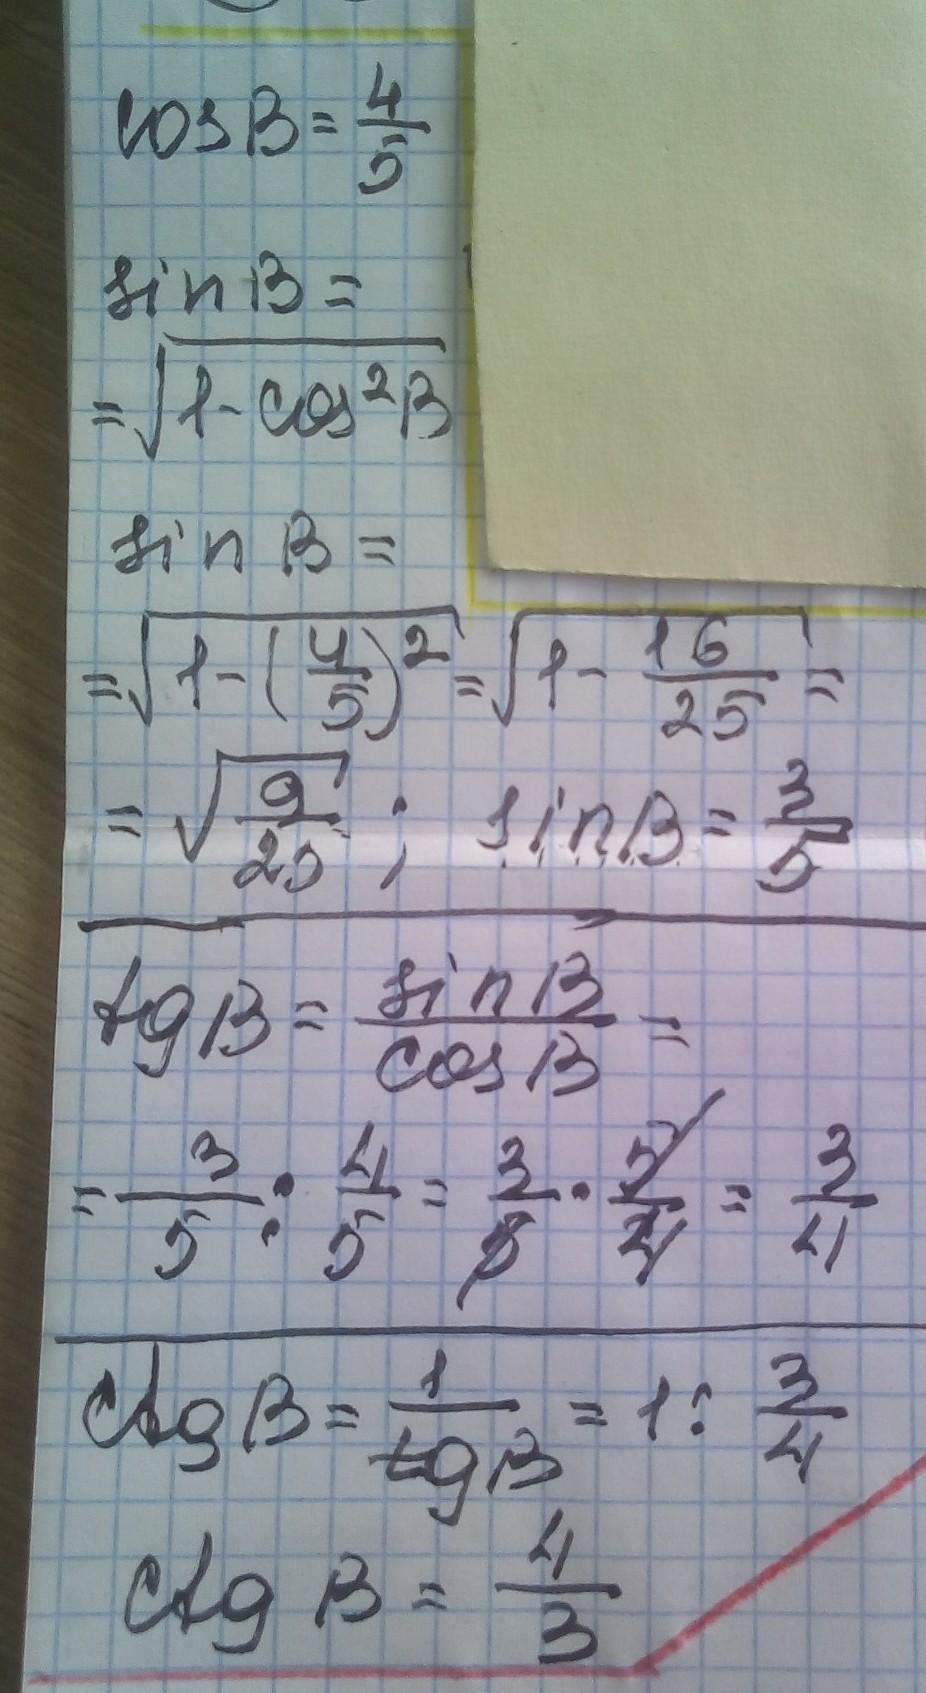 cos B = 4/5
sin B =
= √(1 - cos²B)
sin B =
= √(1 - (4/5)²) = √(1 - 16/25) =
= √(9/25) ; sin B = 3/5
tg B = sin B / cos B =
= 3/5 : 4/5 = 3/5 · 5/4 = 3/4
ctg B = 1/tg B = 1 : 3/4
ctg B = 4/3